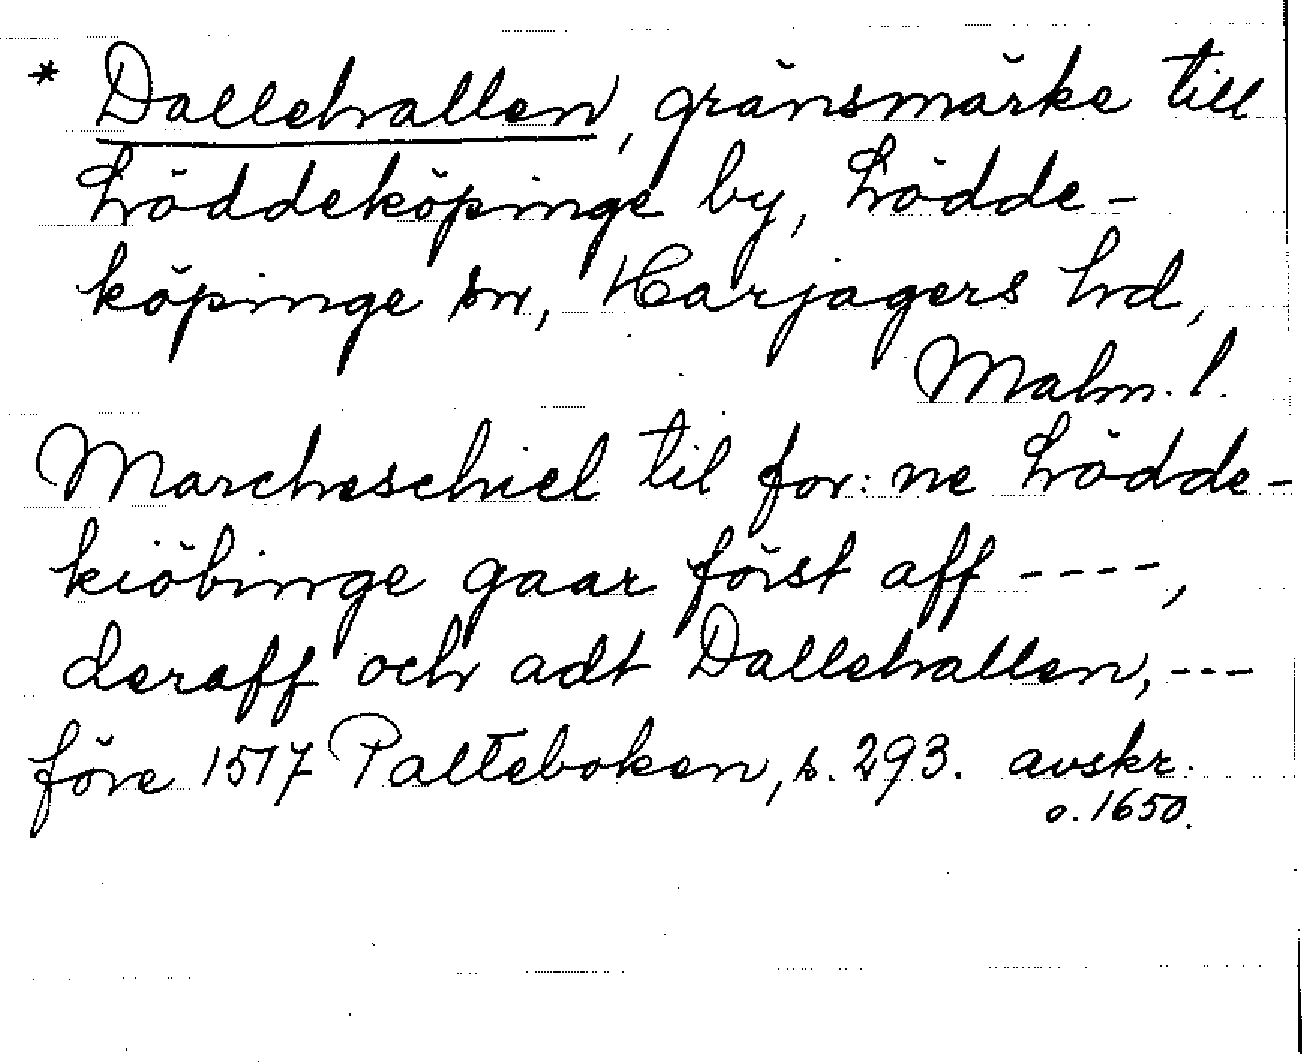 * Dallehallen, gränsmärke till
Löddeköpinge by, Lödde-
köpinge sn, Harjagers hd,
Malm. l.
Marcheschiel til for: ne Lödde-
kiöbinge gaar först aff ----,
deraff och adt Dallehallen, ---
före 1517 Palteboken, s. 293. avskr.
o. 1650.